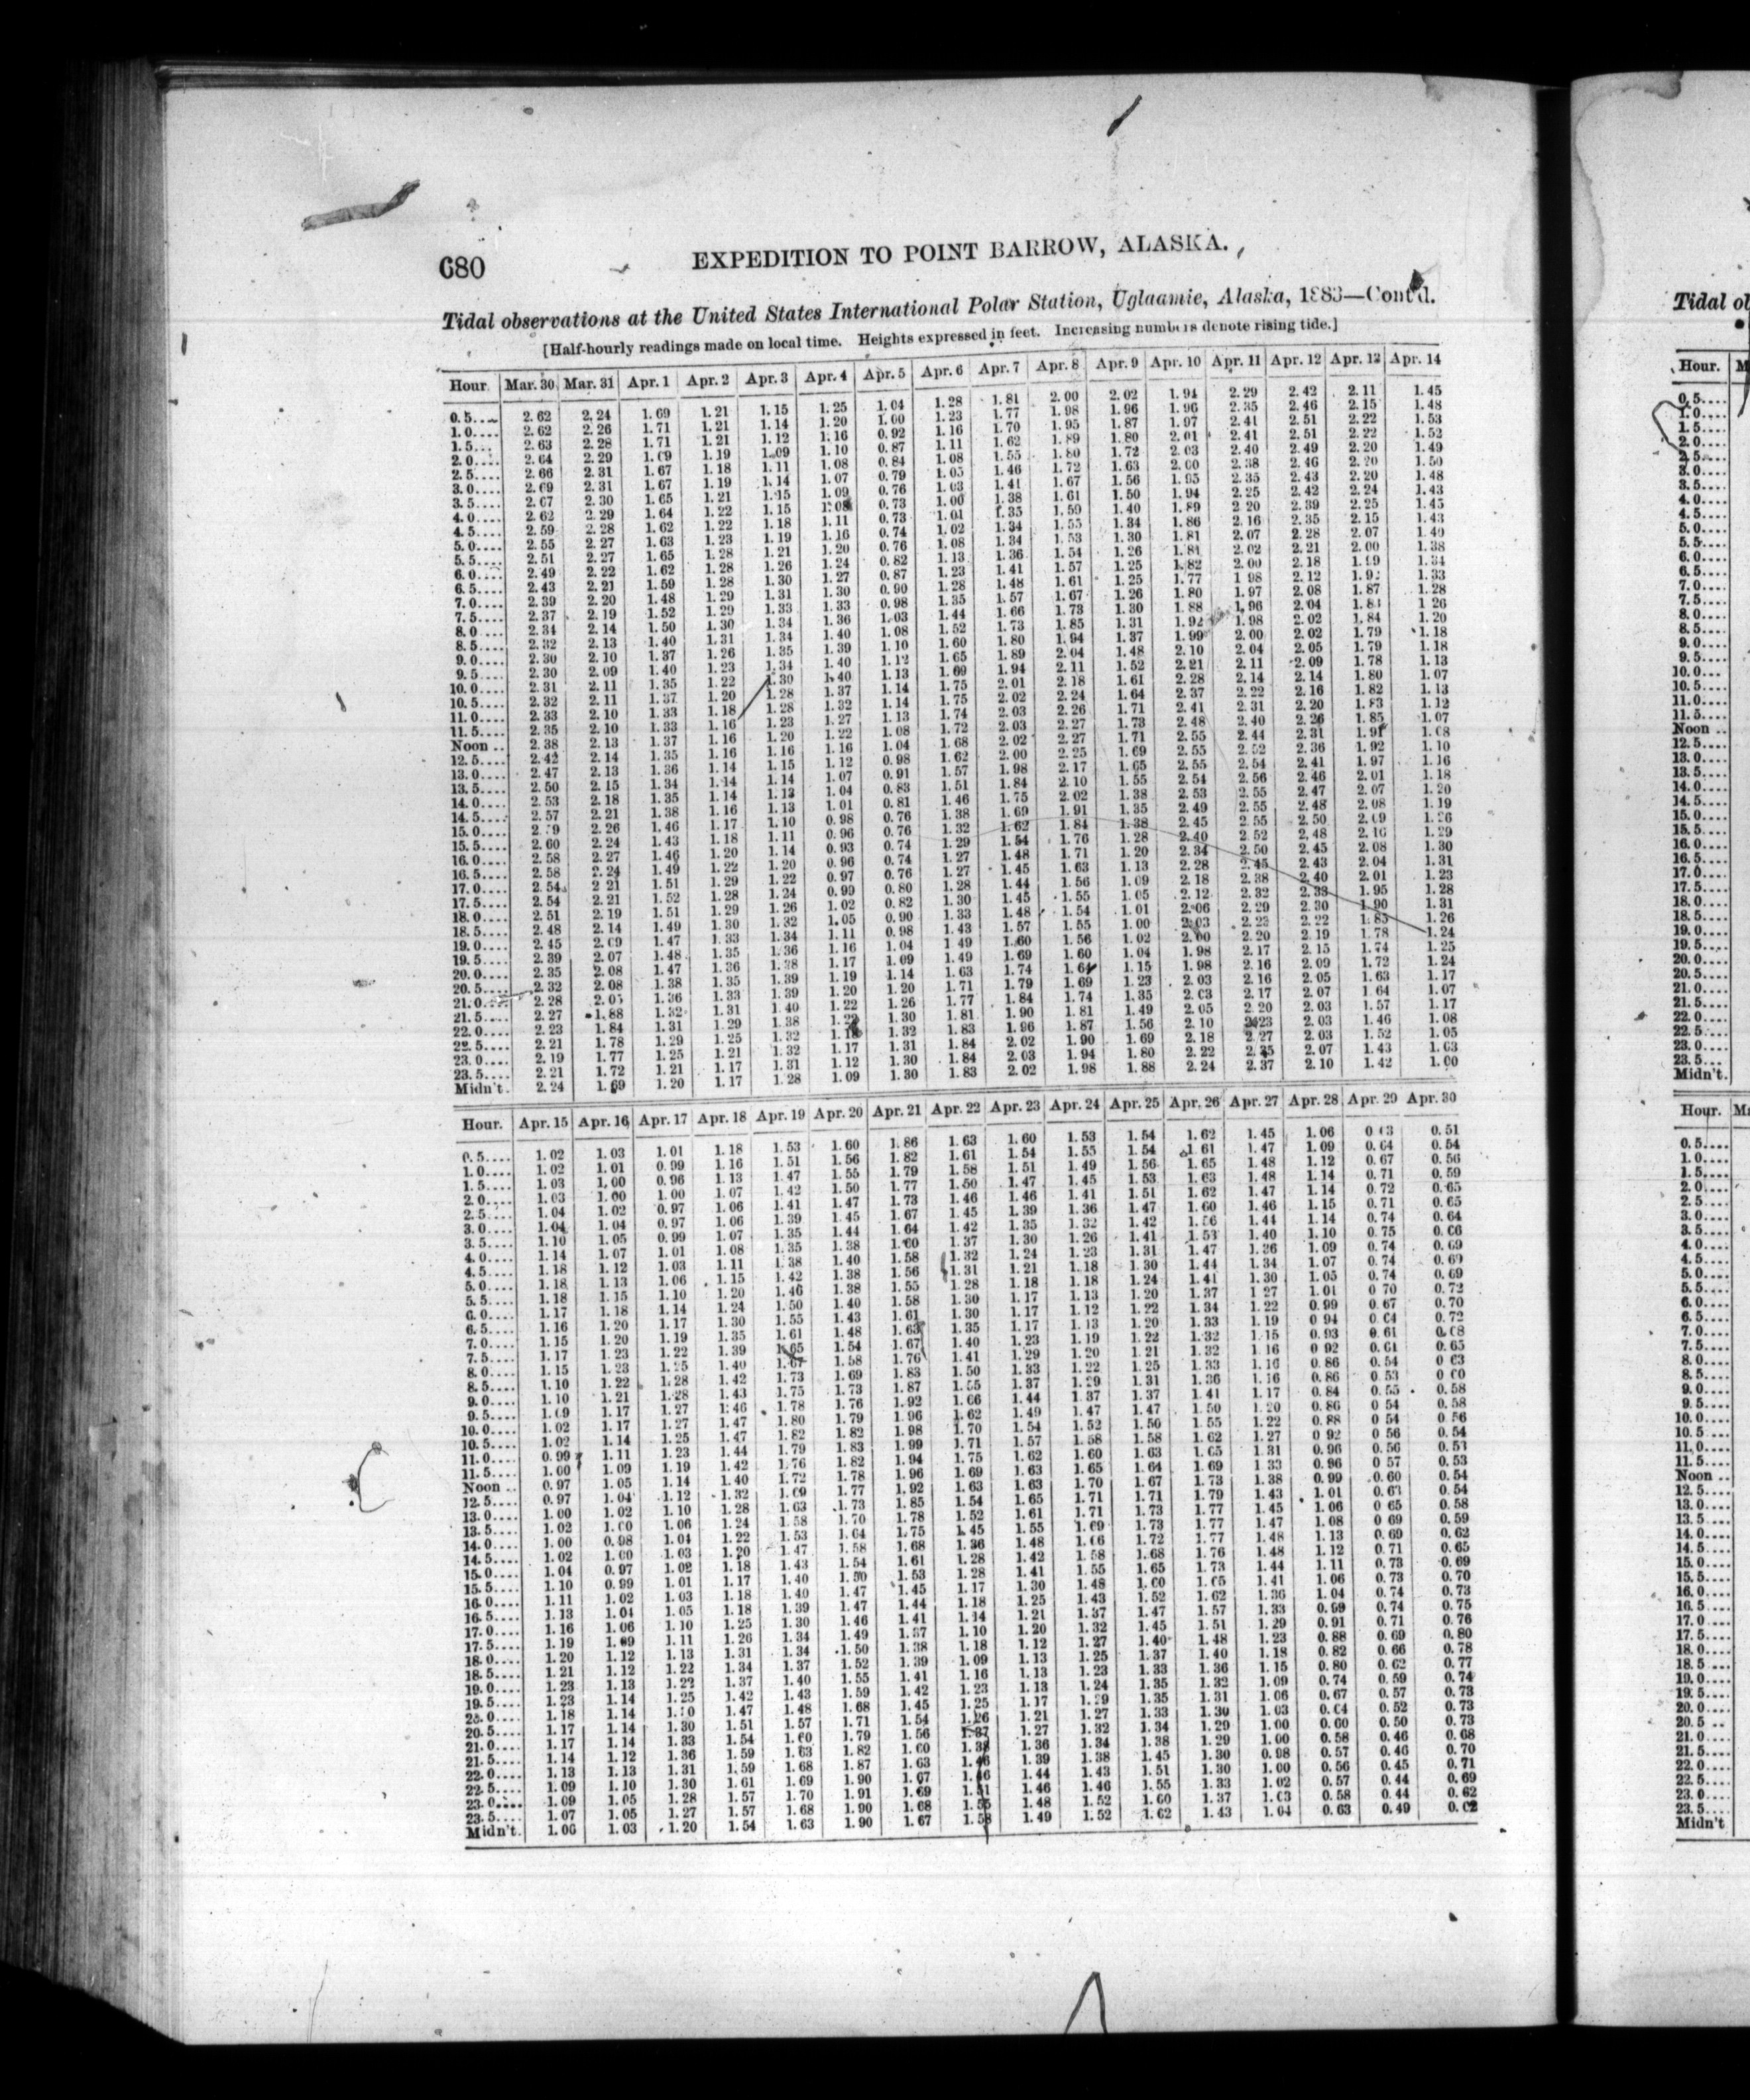 680 EXPEDITION TO POINT BARROW, ALASKA.
Tidal observations at the United States International Polar Station, Uglaamie, Alaska, 1883—Cont'd.
[Half-hourly readings made on local time. Heights expressed in feet. Increasing numbers denote rising tide.]
Hour. Mar. 30 Mar. 31 Apr. 1 Apr. 2 Apr. 3 Apr. 4 Apr. 5 Apr. 6 Apr. 7 Apr. 8 Apr. 9 Apr. 10 Apr. 11 Apr. 12 Apr. 13 Apr. 14
0.5.... 2.62 2.24 1.69 1.21 1.15 1.25 1.04 1.28 1.81 2.00 2.02 1.94 2.29 2.42 2.11 1.45
1.0.... 2.62 2.26 1.71 1.21 1.14 1.20 1.00 1.23 1.77 1.98 1.96 1.96 2.35 2.46 2.15 1.48
1.5... 2.63 2.28 1.71 1.21 1.12 1.16 0.92 1.16 1.70 1.95 1.87 1.97 2.41 2.51 2.22 1.53
2.0.... 2.64 2.29 1.69 1.19 1.09 1.10 0.87 1.11 1.62 1.89 1.80 2.01 2.41 2.51 2.22 1.52
2.5.... 2.66 2.31 1.67 1.18 1.11 1.08 0.84 1.08 1.55 1.80 1.72 2.03 2.40 2.49 2.20 1.49
3.0.... 2.69 2.31 1.67 1.19 1.14 1.07 0.79 1.05 1.46 1.72 1.63 2.00 2.38 2.46 2.20 1.50
3.5.... 2.67 2.30 1.65 1.21 1.15 1.09 0.76 1.03 1.41 1.67 1.56 1.95 2.35 2.43 2.20 1.48
4.0.... 2.62 2.29 1.64 1.22 1.15 1.08 0.73 1.00 1.38 1.61 1.50 1.94 2.25 2.42 2.24 1.43
4.5.... 2.59 2.28 1.62 1.22 1.18 1.11 0.73 1.01 1.35 1.59 1.40 1.89 2.20 2.39 2.25 1.45
5.0.... 2.55 2.27 1.63 1.23 1.19 1.16 0.74 1.02 1.34 1.55 1.34 1.86 2.16 2.35 2.15 1.43
5.5.... 2.51 2.27 1.65 1.28 1.21 1.20 0.76 1.08 1.34 1.53 1.30 1.81 2.07 2.28 2.07 1.40
6.0.... 2.49 2.22 1.62 1.28 1.26 1.24 0.82 1.13 1.36 1.54 1.26 1.81 2.02 2.21 2.00 1.38
6.5.... 2.43 2.21 1.59 1.28 1.30 1.27 0.87 1.23 1.41 1.57 1.25 1.82 2.00 2.18 1.99 1.34
7.0.... 2.39 2.20 1.48 1.29 1.31 1.30 0.90 1.28 1.48 1.61 1.25 1.77 1.98 2.12 1.33
7.5.... 2.37 2.19 1.52 1.29 1.33 1.33 0.98 1.35 1.57 1.67 1.26 1.80 1.97 2.08 1.87 1.28
8.0.... 2.34 2.14 1.50 1.30 1.34 1.36 1.03 1.44 1.66 1.73 1.30 1.88 1.96 2.04 1.84 1.26
8.5.... 2.32 2.13 1.40 1.31 1.34 1.40 1.08 1.52 1.73 1.85 1.31 1.92 1.98 2.02 1.84 1.20
9.0.... 2.30 2.10 1.37 1.26 1.35 1.39 1.10 1.60 1.80 1.94 1.37 1.99 2.00 2.02 1.79 1.18
9.5.... 2.30 2.09 1.40 1.23 1.34 1.40 1.12 1.65 1.89 2.04 1.48 2.10 2.04 2.05 1.79 1.18
10.0.... 2.31 2.11 1.35 1.22 1.30 1.40 1.13 1.69 1.94 2.11 1.52 2.21 2.11 2.09 1.78 1.13
10.5.... 2.32 2.11 1.37 1.20 1.28 1.37 1.14 1.75 2.01 2.18 1.61 2.28 2.14 2.14 1.80 1.07
11.0.... 2.33 2.10 1.33 1.18 1.28 1.32 1.14 1.75 2.02 2.24 1.64 2.37 2.22 2.16 1.82 1.13
11.5.... 2.35 2.10 1.33 1.16 1.23 1.27 1.13 1.74 2.03 2.26 1.71 2.41 2.31 2.20 1.83 1.12
Noon .. 2.38 2.13 1.37 1.16 1.20 1.22 1.08 1.72 2.03 2.27 1.73 2.48 2.40 2.26 1.85 1.07
12.5.... 2.42 2.14 1.35 1.16 1.16 1.16 1.04 1.68 2.02 2.27 1.71 2.55 2.44 2.31 1.91 1.08
13.0.... 2.47 2.13 1.36 1.14 1.15 1.12 0.98 1.62 2.00 2.25 1.69 2.55 2.52 2.36 1.92 1.10
13.5.... 2.50 2.15 1.34 1.14 1.14 1.07 0.91 1.57 1.98 2.17 1.65 2.55 2.54 2.41 1.97 1.16
14.0.... 2.53 2.18 1.35 1.14 1.13 1.04 0.83 1.51 1.84 2.10 1.55 2.54 2.56 2.46 2.01 1.18
14.5.... 2.57 2.21 1.38 1.16 1.13 1.01 0.81 1.46 1.75 2.02 1.38 2.53 2.55 2.47 2.07 1.20
15.0.... 2.26 1.46 1.17 1.10 0.98 0.76 1.38 1.69 1.91 1.35 2.49 2.55 2.48 2.08 1.19
15.5.... 2.60 2.24 1.43 1.18 1.11 0.96 0.76 1.32 1.62 1.84 1.38 2.45 2.55 2.50 2.09 1.26
16.0.... 2.58 2.27 1.46 1.20 1.14 0.93 0.74 1.29 1.54 1.76 1.28 2.40 2.52 2.48 2.16 1.29
16.5.... 2.58 2.24 1.49 1.22 1.20 0.96 0.74 1.27 1.48 1.71 1.20 2.34 2.50 2.45 2.08 1.30
17.0.... 2.54 2.21 1.51 1.29 1.22 0.97 0.76 1.27 1.45 1.63 1.13 2.28 2.45 2.43 2.04 1.31
17.5.... 2.54 2.21 1.52 1.28 1.24 0.99 0.80 1.28 1.44 1.56 1.09 2.18 2.38 2.40 2.01 1.23
18.0.... 2.51 2.19 1.51 1.29 1.26 1.02 0.82 1.30 1.45 1.55 1.05 2.12 2.32 2.33 1.95 1.28
18.5.... 2.48 2.14 1.49 1.30 1.32 1.05 0.90 1.33 1.48 1.54 1.01 2.06 2.29 2.30 1.90 1.31
19.0.... 2.45 2.09 1.47 1.33 1.34 1.11 0.98 1.43 1.57 1.55 1.00 2.03 2.23 2.22 1.85 1.26
19.5.... 2.39 2.07 1.48 1.35 1.36 1.16 1.04 1.49 1.60 1.56 1.02 2.00 2.20 2.19 1.78 1.24
20.0.... 2.35 2.08 1.47 1.36 1.38 1.17 1.09 1.49 1.69 1.60 1.04 1.98 2.17 2.15 1.74 1.25
20.5.... 2.32 2.08 1.38 1.35 1.39 1.19 1.14 1.63 1.74 1.64 1.15 1.98 2.16 2.09 1.72 1.24
21.0.... 2.28 2.05 1.36 1.33 1.39 1.20 1.20 1.71 1.79 1.69 1.23 2.03 2.16 2.05 1.63 1.17
21.5.... 2.27 1.88 1.32 1.31 1.40 1.22 1.26 1.77 1.84 1.74 1.35 2.03 2.17 2.07 1.64 1.07
22.0.... 2.23 1.84 1.31 1.29 1.38 1.22 1.30 1.81 1.90 1.81 1.49 2.05 2.20 2.03 1.57 1.17
22.5.... 2.21 1.78 1.29 1.25 1.32 1.18 1.32 1.83 1.96 1.87 1.56 2.10 2.23 2.03 1.46 1.08
23.0.... 2.19 1.77 1.25 1.21 1.32 1.17 1.31 1.84 2.02 1.90 1.69 2.18 2.27 2.03 1.52 1.05
23.5.... 2.21 1.72 1.21 1.17 1.31 1.12 1.30 1.84 2.03 1.94 1.80 2.22 2.35 2.07 1.43 1.03
Midn't. 2.24 1.69 1.20 1.17 1.28 1.09 1.30 1.83 2.02 1.98 1.88 2.24 2.37 2.10 1.42 1.00
Hour. Apr. 15 Apr. 16 Apr. 17 Apr. 18 Apr. 19 Apr. 20 Apr. 21 Apr. 22 Apr. 23 Apr. 24 Apr. 25 Apr. 26 Apr. 27 Apr. 28 Apr. 29 Apr. 30
0.5.... 1.02 1.03 1.01 1.18 1.53 1.60 1.86 1.63 1.60 1.53 1.54 1.62 1.45 1.06 0.63 0.51
1.0.... 1.02 1.01 0.99 1.16 1.51 1.56 1.82 1.61 1.54 1.55 1.54 1.61 1.47 1.09 0.64 0.54
1.5.... 1.03 1.00 0.96 1.13 1.47 1.55 1.79 1.58 1.51 1.49 1.56 1.65 1.48 1.12 0.67 0.56
2.0.... 1.03 1.00 1.00 1.07 1.42 1.50 1.77 1.50 1.47 1.45 1.53 1.63 1.48 1.14 0.71 0.59
2.5.... 1.04 1.02 0.97 1.06 1.41 1.47 1.73 1.46 1.46 1.41 1.51 1.62 1.47 1.14 0.72 0.65
3.0.... 1.04 1.04 0.97 1.06 1.39 1.45 1.67 1.45 1.39 1.36 1.47 1.60 1.46 1.15 0.71 0.65
3.5.... 1.10 1.05 0.99 1.07 1.35 1.44 1.64 1.42 1.35 1.32 1.42 1.56 1.44 1.14 0.74 0.64
4.0.... 1.14 1.07 1.01 1.08 1.35 1.38 1.60 1.37 1.30 1.26 1.41 1.53 1.40 1.10 0.75 0.66
4.5.... 1.18 1.12 1.03 1.11 1.38 1.40 1.58 1.32 1.24 1.23 1.31 1.47 1.36 1.09 0.74 0.69
5.0.... 1.18 1.13 1.06 1.15 1.42 1.38 1.56 1.31 1.21 1.18 1.30 1.44 1.34 1.07 0.74 0.69
5.5.... 1.18 1.15 1.10 1.20 1.46 1.38 1.55 1.28 1.18 1.18 1.24 1.41 1.30 1.05 0.74 0.69
6.0.... 1.17 1.18 1.14 1.24 1.50 1.40 1.58 1.30 1.17 1.13 1.20 1.37 1.27 1.01 0.70 0.72
6.5.... 1.16 1.20 1.17 1.30 1.55 1.43 1.61 1.30 1.17 1.12 1.22 1.34 1.22 0.99 0.67 0.70
7.0.... 1.15 1.20 1.19 1.35 1.61 1.48 1.63 1.35 1.17 1.13 1.20 1.33 1.19 0.94 0.64 0.72
7.5.... 1.17 1.23 1.22 1.39 1.65 1.54 1.67 1.40 1.23 1.19 1.22 1.32 1.15 0.93 0.61 0.68
8.0.... 1.15 1.23 1.25 1.40 1.67 1.58 1.76 1.41 1.29 1.20 1.21 1.32 1.16 0.92 0.61 0.65
8.5.... 1.10 1.22 1.28 1.42 1.73 1.69 1.83 1.50 1.33 1.22 1.25 1.33 1.16 0.86 0.54 0.63
9.0.... 1.10 1.21 1.28 1.43 1.75 1.73 1.87 1.55 1.37 1.29 1.31 1.36 1.16 0.86 0.53 0.60
9.5.... 1.09 1.17 1.27 1.46 1.78 1.76 1.92 1.66 1.44 1.37 1.37 1.41 1.17 0.84 0.55 0.58
10.0.... 1.02 1.17 1.27 1.47 1.80 1.79 1.96 1.62 1.49 1.47 1.47 1.50 1.20 0.86 0.54 0.58
10.5.... 1.02 1.14 1.25 1.47 1.82 1.82 1.98 1.70 1.54 1.52 1.50 1.55 1.22 0.88 0.54 0.56
11.0.... 0.99 1.11 1.23 1.44 1.79 1.83 1.99 1.71 1.57 1.58 1.58 1.62 1.27 0.92 0.56 0.54
11.5.... 1.00 1.09 1.19 1.42 1.76 1.82 1.94 1.75 1.62 1.60 1.63 1.65 1.31 0.96 0.56 0.53
Noon .. 0.97 1.05 1.14 1.40 1.72 1.78 1.96 1.69 1.63 1.65 1.64 1.69 1.33 0.96 0.57 0.53
12.5.... 0.97 1.04 1.12 1.32 1.69 1.77 1.92 1.63 1.63 1.70 1.67 1.73 1.38 0.99 0.60 0.54
13.0.... 1.00 1.02 1.10 1.28 1.63 1.73 1.85 1.54 1.65 1.71 1.71 1.79 1.43 1.01 0.63 0.54
13.5.... 1.02 1.00 1.06 1.24 1.58 1.70 1.78 1.52 1.61 1.71 1.73 1.77 1.45 1.06 0.65 0.58
14.0.... 1.00 0.98 1.04 1.22 1.53 1.64 1.75 1.45 1.55 1.69 1.73 1.77 1.47 1.08 0.69 0.59
14.5.... 1.02 1.00 1.03 1.20 1.47 1.58 1.68 1.36 1.48 1.66 1.72 1.77 1.48 1.13 0.69 0.62
15.0.... 1.04 0.97 1.02 1.18 1.43 1.54 1.61 1.28 1.42 1.58 1.68 1.76 1.48 1.12 0.71 0.65
15.5.... 1.10 0.99 1.01 1.17 1.40 1.50 1.53 1.28 1.41 1.55 1.65 1.73 1.44 1.11 0.73 0.69
16.0.... 1.11 1.02 1.03 1.18 1.40 1.47 1.45 1.17 1.30 1.48 1.60 1.65 1.41 1.06 0.73 0.70
16.5.... 1.13 1.04 1.05 1.18 1.39 1.47 1.44 1.18 1.25 1.43 1.52 1.62 1.36 1.04 0.74 0.73
17.0.... 1.16 1.06 1.10 1.25 1.30 1.46 1.41 1.14 1.21 1.37 1.47 1.57 1.33 0.99 0.74 0.75
17.5.... 1.19 1.09 1.11 1.26 1.34 1.49 1.37 1.10 1.20 1.32 1.45 1.51 1.29 0.91 0.71 0.76
18.0.... 1.20 1.12 1.13 1.31 1.34 1.50 1.38 1.18 1.12 1.27 1.40 1.48 1.23 0.88 0.69 0.80
18.5.... 1.21 1.12 1.22 1.34 1.37 1.52 1.39 1.09 1.13 1.25 1.37 1.40 1.18 0.82 0.66 0.78
19.0.... 1.23 1.13 1.22 1.37 1.40 1.55 1.41 1.16 1.13 1.23 1.33 1.36 1.15 0.80 0.62 0.77
19.5.... 1.23 1.14 1.25 1.42 1.43 1.59 1.42 1.23 1.13 1.24 1.35 1.32 1.09 0.74 0.59 0.74
20.0.... 1.18 1.14 1.47 1.48 1.68 1.45 1.25 1.17 1.29 1.35 1.31 1.06 0.67 0.57 0.73
20.5.... 1.17 1.14 1.30 1.51 1.57 1.71 1.54 1.26 1.21 1.27 1.33 1.30 1.03 0.64 0.52 0.73
21.0.... 1.17 1.14 1.33 1.54 1.60 1.79 1.56 1.37 1.27 1.32 1.34 1.29 1.00 0.60 0.50 0.73
21.5.... 1.14 1.12 1.36 1.59 1.63 1.82 1.60 1.38 1.36 1.34 1.38 1.29 1.00 0.58 0.46 0.68
22.0.... 1.13 1.13 1.31 1.59 1.68 1.87 1.63 1.46 1.39 1.38 1.45 1.30 0.98 0.57 0.46 0.70
22.5.... 1.09 1.10 1.30 1.61 1.69 1.90 1.67 1.46 1.44 1.43 1.51 1.30 1.00 0.56 0.45 0.71
23.0.... 1.09 1.05 1.28 1.57 1.70 1.91 1.69 1.51 1.46 1.46 1.55 1.33 1.02 0.57 0.44 0.69
23.5.... 1.07 1.05 1.27 1.57 1.68 1.90 1.68 1.55 1.48 1.52 1.60 1.37 1.03 0.58 0.44 0.62
Midn't. 1.06 1.03 1.20 1.54 1.63 1.90 1.67 1.58 1.49 1.52 1.62 1.43 1.04 0.63 0.49 0.62